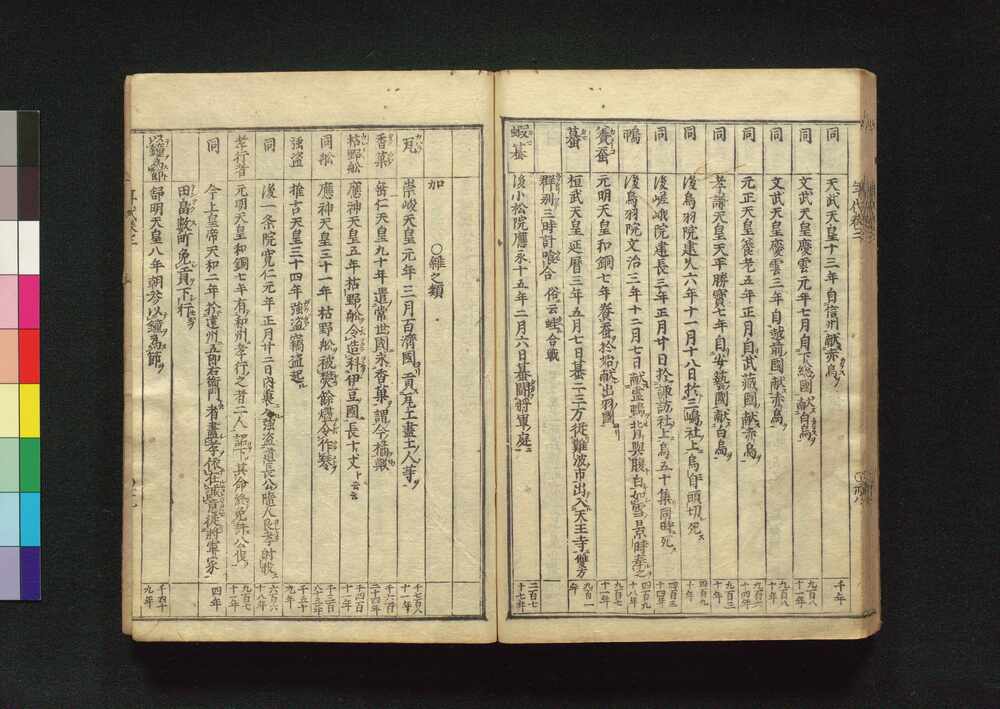 同 天武天皇十三年自信州献赤烏 千年
同 文武天皇慶雲元年七月自下総國献白烏 九百八十一年
同 文武天皇慶雲三年自越前國献赤烏 九百八十年
同 元正天皇養老五年正月自武蔵國献赤烏 九百六十四年
同 孝謙天皇天平勝寶七年自安藝國献白烏 九百三十年
同 後鳥羽院建久六年十一月十八日於三嶋社上烏自頭切死 四百九十年
同 後嵯峨院建長三年正月廿日於諏訪社上烏五十集同時死 四百三十四年
鴨 後鳥羽院文治三年十二月七日献霊鴨背與腹白如雪景時奉之 四百九十八年
養蚕 元明天皇和銅七年養蚕於始献出羽國 九百七十一年
蟇 桓武天皇延暦三年五月七日蟇二三万従難波市出入天王寺雙方
群別三時計喰合 俗云蛙合戦 九百一年
蝦蟇 後小松院應永十五年二月六日蟇闘将軍庭 二百七十七年
加
〇雑之類
瓦 崇峻天皇元年三月百済國貢瓦工畫工人等 千七百八十一年
香菓 垂仁天皇九十年遣常世國求香菓謂今橘歟 千六百二十四年
枯野舩 應神天皇五年枯野舩令造科伊豆國長十丈ト云云 千四百十一年
同舩 應神天皇三十一年枯野舩被焚餘燼令作琴 千三百八十五年
強盗 推古天皇三十四年強盗竊盗起 千六十九年
同 後一條院寛仁元年正月廿二日内裏ヘ強盗道長公隨人良孝射殺 六百六十八年
孝行者 元明天皇和銅七年有和州孝行之者二人詔下其命終免課公役 九百七十一年
同 今上皇帝天和二年於遠州五郎右衛門者盡孝依在誠實従将軍家 四年
田畠数町免貢下行
以鐘為節 舒明天皇八年朝参以鐘為節 千四十九年